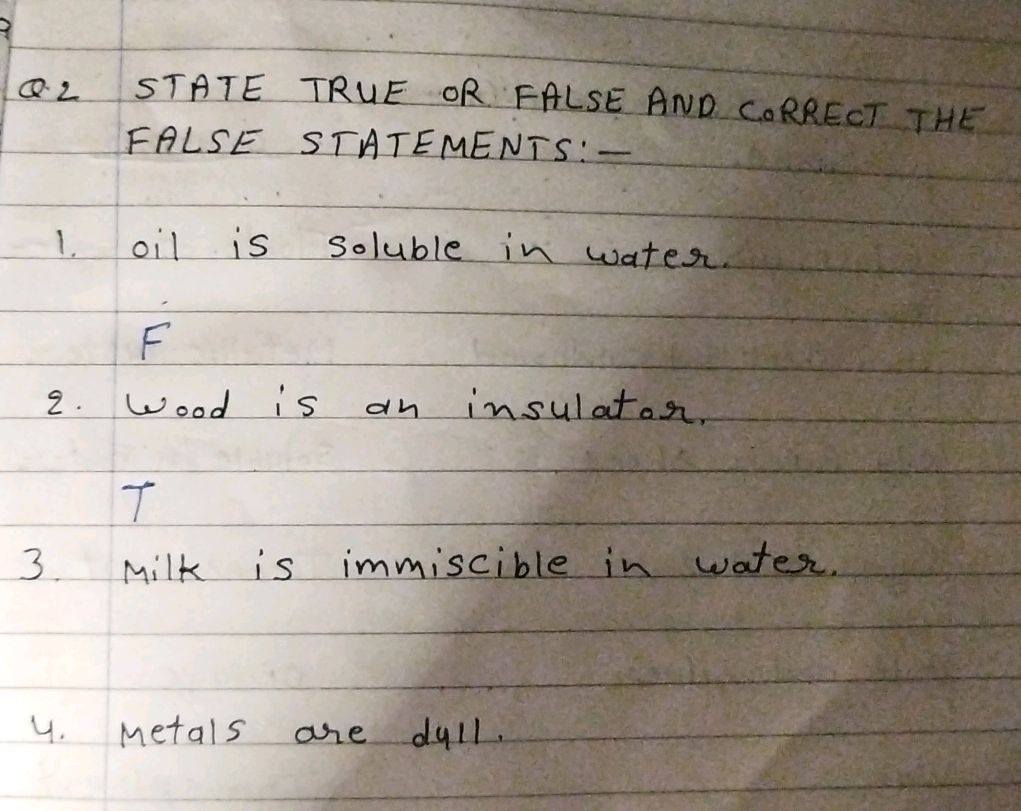 Q.2 STATE TRUE OR FALSE AND CORRECT THE
FALSE STATEMENTS:—
1. oil is soluble in water.
F
2. Wood is an insulator.
T
3. Milk is immiscible in water.
4. Metals are dull.